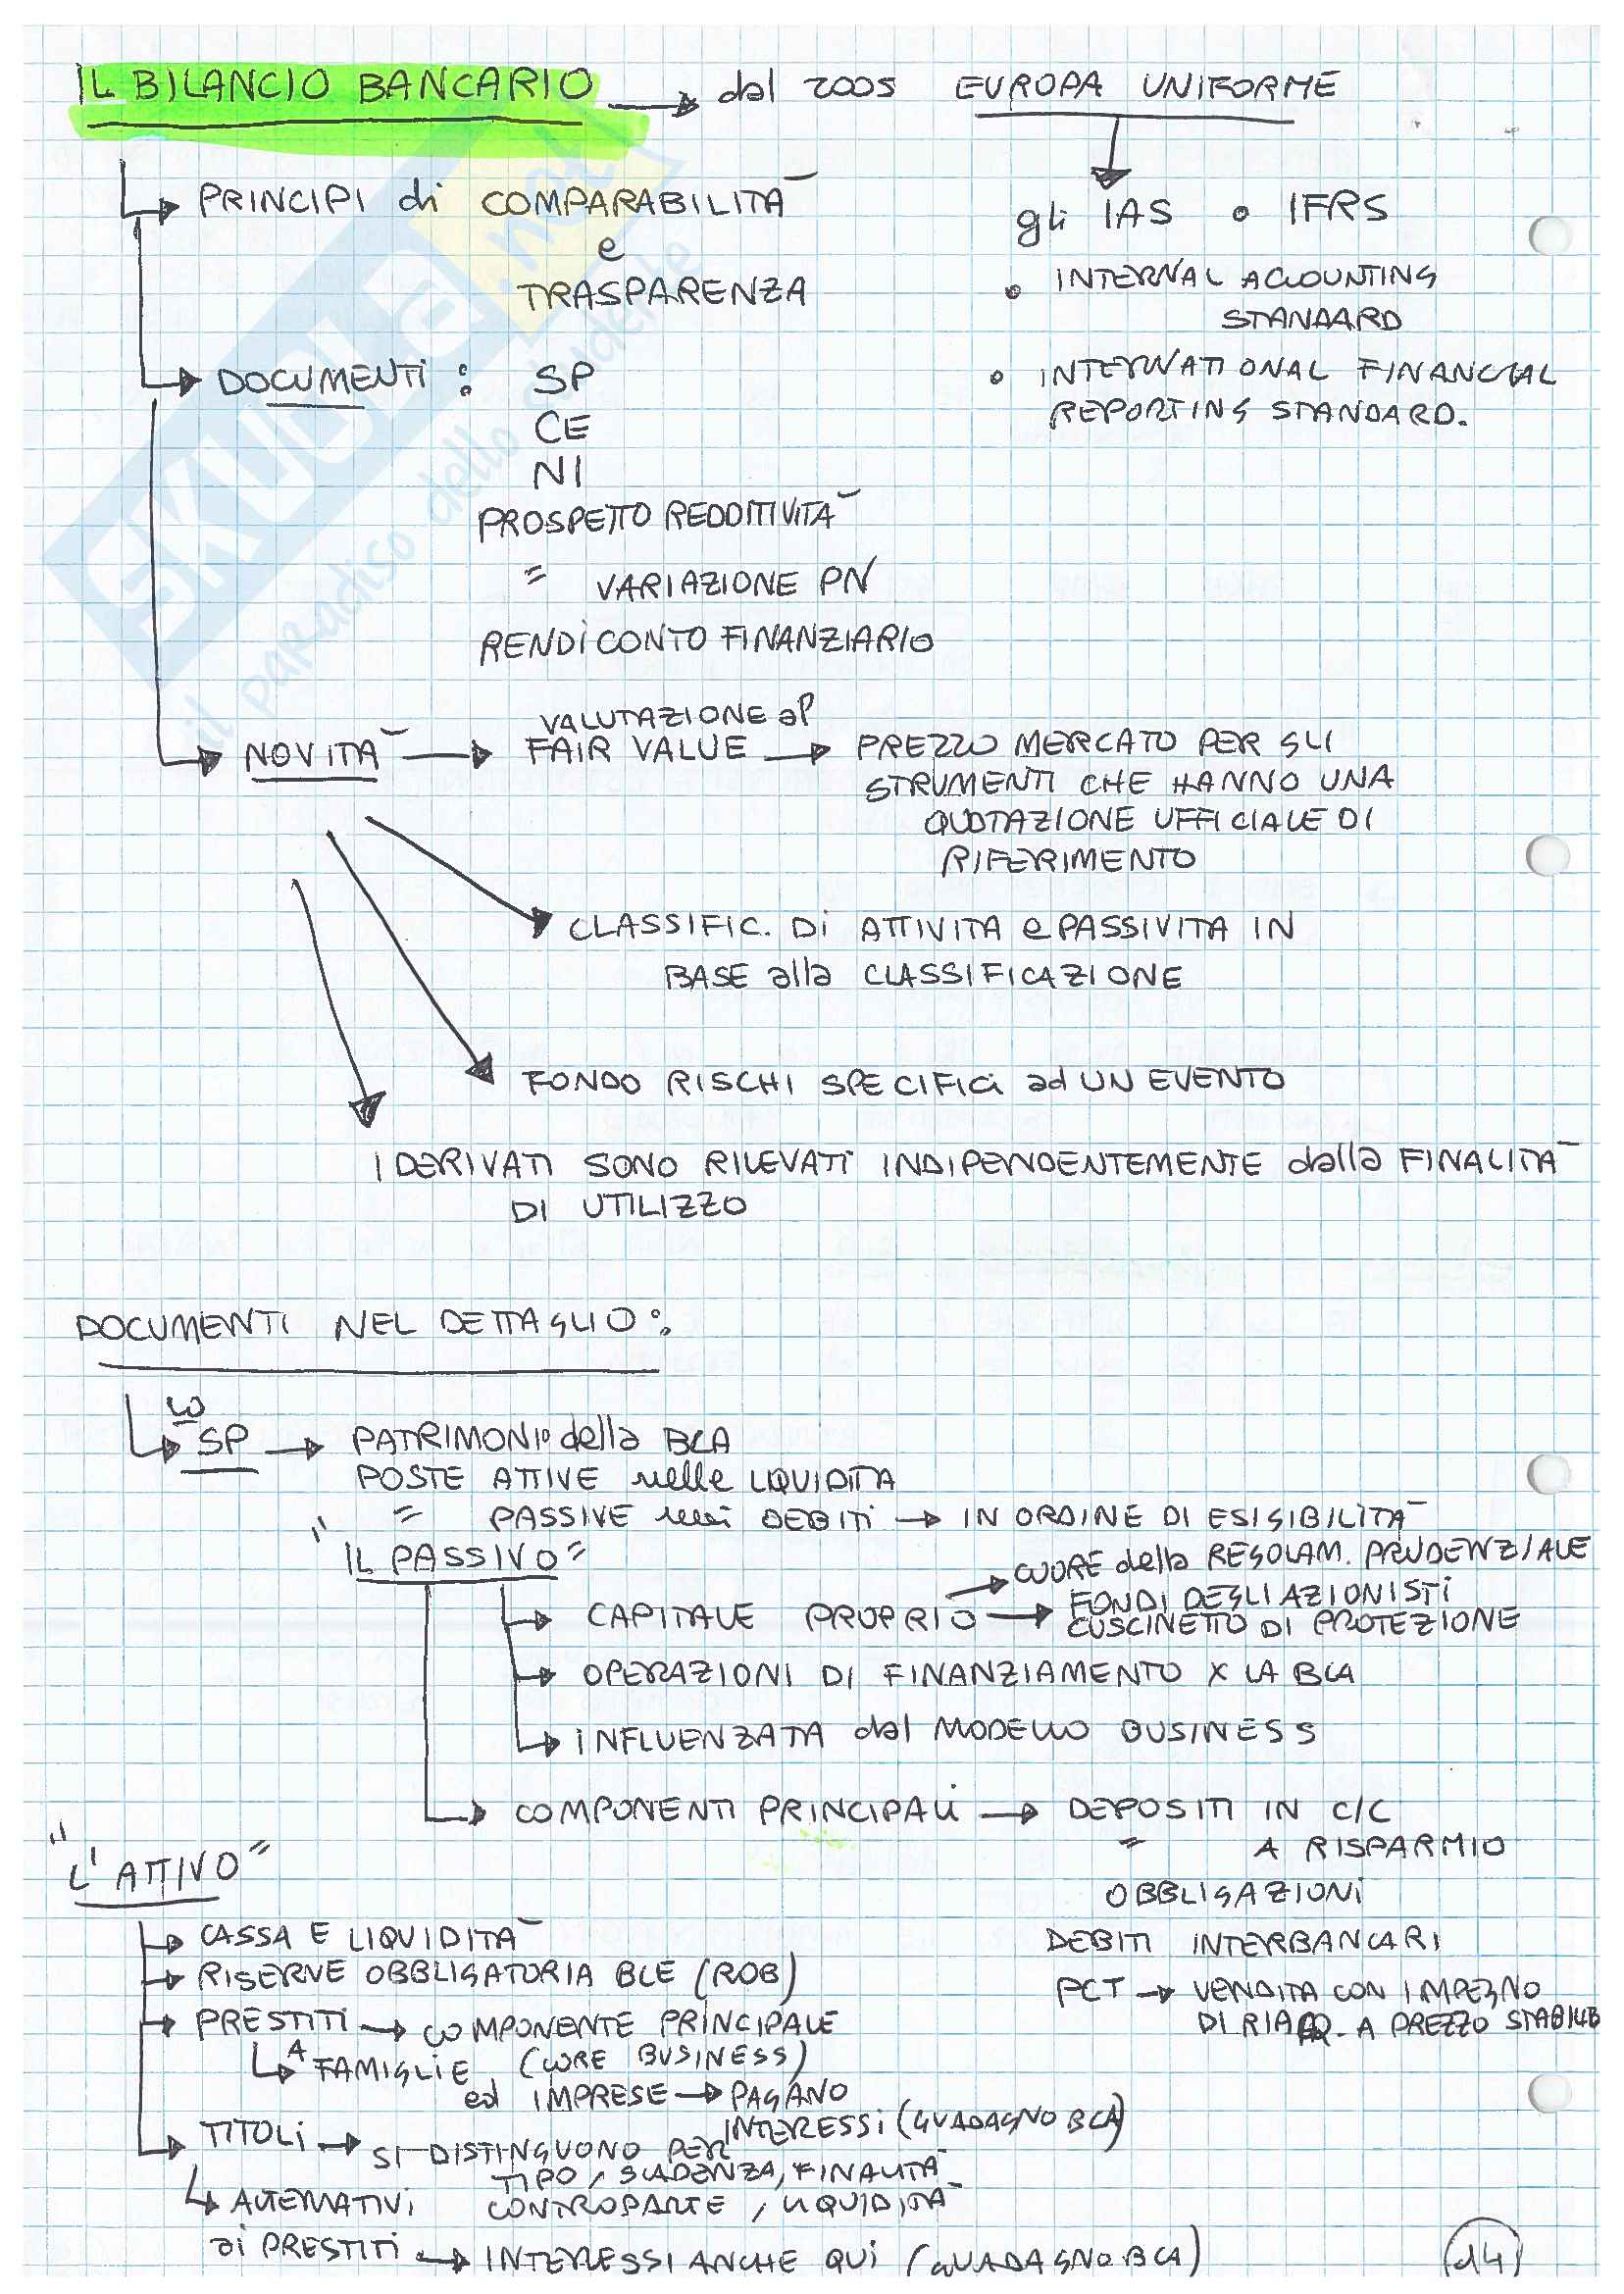 IL BILANCIO BANCARIO → dal 2005 EUROPA UNIFORME
→ PRINCIPI di COMPARABILITÀ
e
TRASPARENZA
gli IAS • IFRS
• INTERNAL ACCOUNTING
STANDARD
• INTERNATIONAL FINANCIAL
REPORTING STANDARD.
→ DOCUMENTI : SP
CE
NI
PROSPETTO REDDITIVITÀ
" VARIAZIONE PN
RENDICONTO FINANZIARIO
→ NOVITÀ → VALUTAZIONE al
FAIR VALUE → PREZZO MERCATO PER GLI
STRUMENTI CHE HANNO UNA
QUOTAZIONE UFFICIALE DI
RIFERIMENTO
CLASSIFIC. Di ATTIVITA e PASSIVITA IN
BASE alla CLASSIFICAZIONE
FONDO RISCHI SPECIFICI ad UN EVENTO
I DERIVATI SONO RILEVATI INDIPENDENTEMENTE dalla FINALITÀ
DI UTILIZZO
DOCUMENTI NEL DETTAGLIO :
LO
→ SP → PATRIMONIO della BCA
POSTE ATTIVE nelle LIQUIDITA
" PASSIVE nei DEBITI → IN ORDINE DI ESIGIBILITÀ
"IL PASSIVO"
→ CUORE della REGOLAM. PRUDENZIALE
→ CAPITALE PROPRIO → FONDI DEGLI AZIONISTI
CUSCINETTO DI PROTEZIONE
→ OPERAZIONI DI FINANZIAMENTO X LA BCA
→ INFLUENZATA dal MODELLO BUSINESS
→ COMPONENTI PRINCIPALI → DEPOSITI IN C/C
" A RISPARMIO
OBBLIGAZIONI
DEBITI INTERBANCARI
PCT → VENDITA CON IMPEGNO
DI RIACQ. A PREZZO STABILIB
"L'ATTIVO"
→ CASSA E LIQUIDITÀ
→ RISERVE OBBLIGATORIA BCE (ROB)
→ PRESTITI → COMPONENTE PRINCIPALE
→ A FAMIGLIE (CORE BUSINESS)
ed IMPRESE → PAGANO
INTERESSI (GUADAGNO BCA)
→ TITOLI → SI DISTINGUONO PER
TIPO, SCADENZA, FINALITÀ
→ ALTERNATIVI CONTROPARTE, LIQUIDITÀ
ai PRESTITI → INTERESSI ANCHE QUI (GUADAGNO BCA)
14
SKUOLA.net
il paradiso dello studente